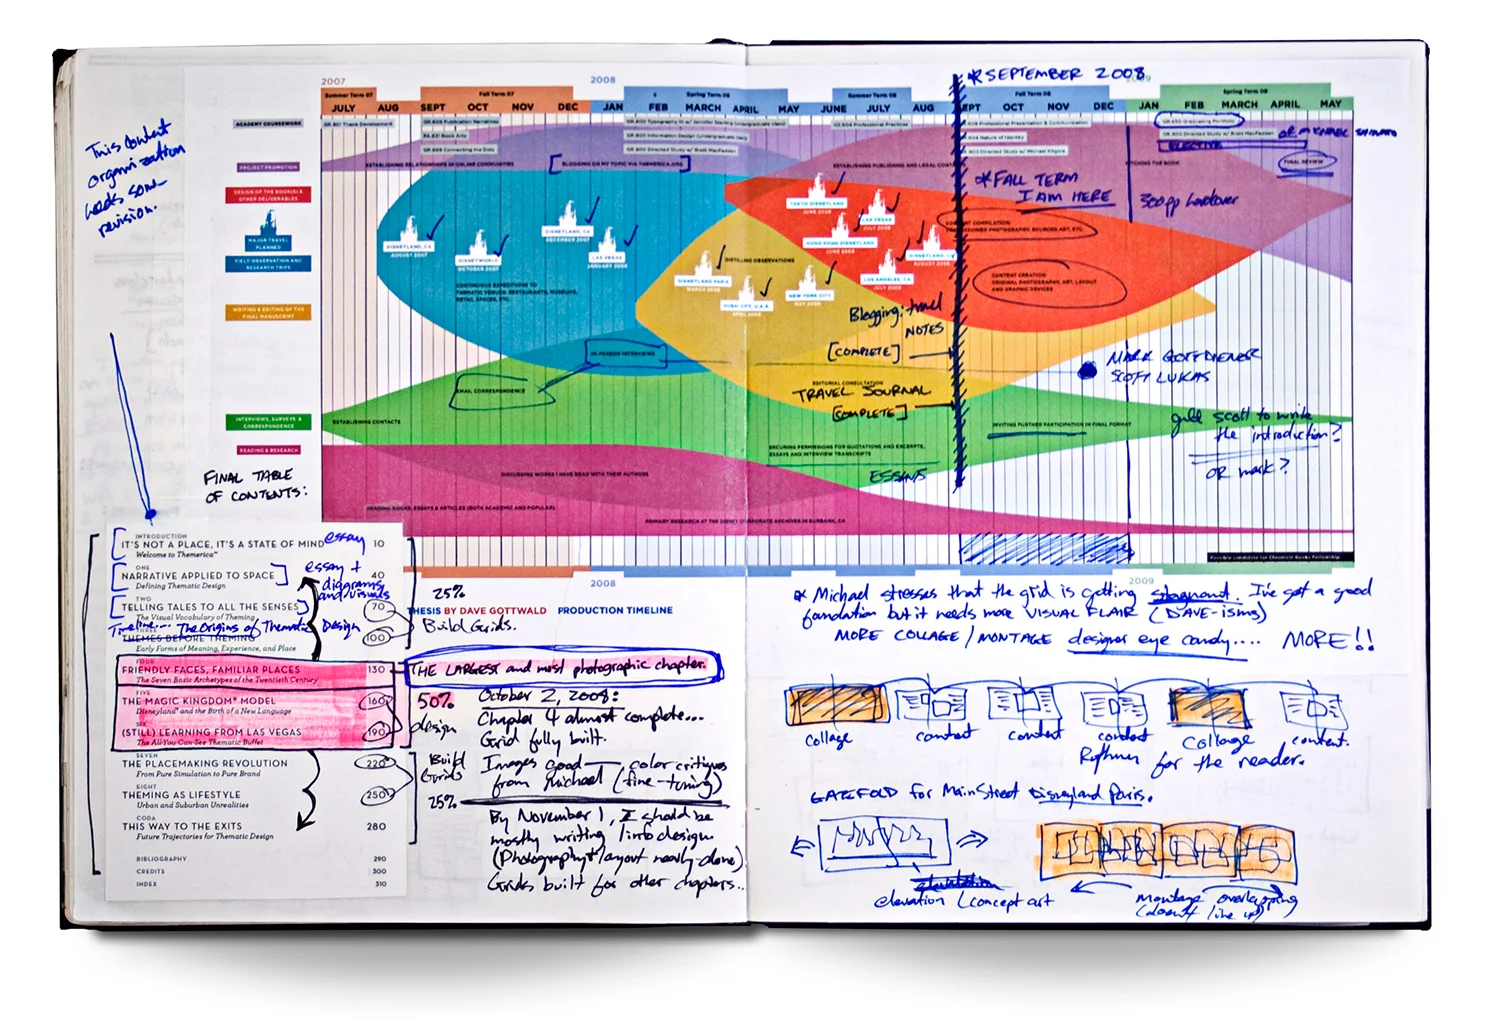 2007
2008
2009
* SEPTEMBER 2008
Summer Term 07
Fall Term 07
Spring Term 08
Summer Term 08
Fall Term 08
Spring Term 09
JULY AUG SEPT OCT NOV DEC JAN FEB MARCH APRIL MAY JUNE JULY AUG SEPT OCT NOV DEC JAN FEB MARCH APRIL MAY
ACADEMY COURSEWORK
GR 801 Thesis Development
GR 600 Publication Narratives
FA 621 Book Arts
GR 599 Connecting the Dots
GR 800 Information Design (undergraduate class)
GR 800 Directed Study w/ Brett MacFadden
GR 604 Professional Practices
Professional Presentation & Communication
604 Nature of Identity
800 Directed Study w/ Michael Kilgore
GR 650 Graduating Portfolio
800 Directed Study w/ Brett MacFadden
OR MICHAEL
ELECTIVE
FINAL REVIEW
This content
organization
needs some
revision.
PROJECT PROMOTION
ESTABLISHING RELATIONSHIPS IN ONLINE COMMUNITIES
[BLOGGING ON MY TOPIC VIA THEMERICA.ORG]
ESTABLISHING PUBLISHING AND LEGAL
PITCHING THE BOOK
DESIGN OF THE BOOK(S) &
OTHER DELIVERABLES
MAJOR TRAVEL
PLANNED
FIELD OBSERVATION AND
RESEARCH TRIPS
WRITING & EDITING OF THE
FINAL MANUSCRIPT
INTERVIEWS, SURVEYS &
CORRESPONDENCE
READING & RESEARCH
* FALL TERM
I AM HERE
300pp hardcover
DISNEYLAND, CA
AUGUST 2007
DISNEYWORLD
OCTOBER 2007
DISNEYLAND, CA
DECEMBER 2007
LAS VEGAS
JANUARY 2008
DISNEYLAND PARIS
MARCH 2008
DUBAI CITY, U.A.E.
APRIL 2008
NEW YORK CITY
MAY 2008
TOKYO DISNEYLAND
JUNE 2008
HONG KONG DISNEYLAND
JUNE 2008
LAS VEGAS
JULY 2008
LOS ANGELES, CA
JULY 2008
DISNEYLAND, CA
AUGUST 2008
CONTINUOUS EXPEDITIONS TO
THEMATIC VENUES: RESTAURANTS, MUSEUMS,
RETAIL SPACES, ETC.
DISTILLING OBSERVATIONS
CONTENT COMPILATION:
COMMISSIONED PHOTOGRAPHY, SOURCED ART, ETC.
CONTENT CREATION:
ORIGINAL PHOTOGRAPHY, ART, LAYOUT
AND GRAPHIC DEVICES
Blogging: travel
NOTES
[COMPLETE]
EDITORIAL CONSULTATION
TRAVEL JOURNAL
[COMPLETE]
IN-PERSON INTERVIEWS
EMAIL CORRESPONDENCE
ESTABLISHING CONTACTS
MARK GOTTDIENER
SCOTT LUKAS
get scott to write
the introduction?
OR mark?
INVITING FURTHER PARTICIPATION IN FINAL FORMAT
SECURING PERMISSIONS FOR QUOTATIONS AND EXCERPTS,
ESSAYS AND INTERVIEW TRANSCRIPTS
ESSAYS
DISCUSSING WORKS I HAVE READ WITH THEIR AUTHORS
READING BOOKS, ESSAYS & ARTICLES (BOTH ACADEMIC AND POPULAR)
PRIMARY RESEARCH AT THE DISNEY CORPORATE ARCHIVES IN BURBANK, CA
Possible candidate for Chronicle Books Fellowship.
2008
2009
THESIS BY DAVE GOTTWALD PRODUCTION TIMELINE
FINAL TABLE
OF CONTENTS:
INTRODUCTION
IT'S NOT A PLACE, IT'S A STATE OF MIND essay 10
Welcome to Themerica™
ONE
NARRATIVE APPLIED TO SPACE 40
Defining Thematic Design
essay +
diagrams
and/visuals
TWO
TELLING TALES TO ALL THE SENSES 70
The Visual Vocabulary of Theming
Timeline... The Origins of Thematic Design
THREE
THEMES BEFORE THEMING 100
Early Forms of Meaning, Experience, and Place
FOUR
FRIENDLY FACES, FAMILIAR PLACES 130
The Seven Basic Archetypes of the Twentieth Century
FIVE
THE MAGIC KINGDOM® MODEL 160
Disneyland® and the Birth of a New Language
SIX
(STILL) LEARNING FROM LAS VEGAS 190
The All-You-Can-See Thematic Buffet
SEVEN
THE PLACEMAKING REVOLUTION 220
From Pure Simulation to Pure Brand
EIGHT
THEMING AS LIFESTYLE 250
Urban and Suburban Unrealities
CODA
THIS WAY TO THE EXITS 280
Future Trajectories for Thematic Design
BIBLIOGRAPHY 290
CREDITS 300
INDEX 310
25%
Build Grids.
THE LARGEST and most photographic chapter.
50%
design
Build
Grids
25%
October 2, 2008:
Chapter 4 almost complete...
Grid fully built.
Images good — color critiques
from Michael (fine-tuning)
By November 1, I should be
mostly writing/into design
(Photography + layout nearly done)
Grids built for other chapters...
* Michael stresses that the grid is getting stagnant. I've got a good
foundation but it needs more VISUAL FLAIR (DAVE-isms)
MORE COLLAGE/MONTAGE designer eye candy.... MORE!!
collage content content content Collage content.
Rythmn for the reader.
GATEFOLD for MainStreet Disneyland Paris.
elevation
elevation/concept art
Montage overlapping
(doesn't line up)